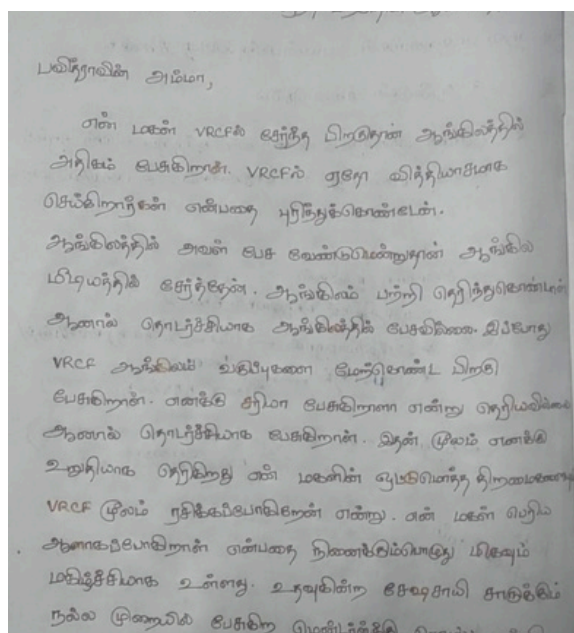 பவித்ராவின் அம்மா,
என் மகள் VRCFல் சேர்ந்த பிறகுதான் ஆங்கிலத்தில்
அதிகம் பேசுகிறாள். VRCFல் ஏதோ வித்தியாசமாக
செய்கிறார்கள் என்பதை புரிந்துக்கொண்டேன்.
ஆங்கிலத்தில் அவள் பேச வேண்டுமென்றுதான் ஆங்கில
மீடியத்தில் சேர்த்தேன். ஆங்கிலம் பற்றி தெரிந்துகொண்டாள்
ஆனால் தொடர்ச்சியாக ஆங்கிலத்தில் பேசவில்லை. இப்போது
VRCF ஆங்கிலம் வகுப்புகளை மேற்கொண்ட பிறகு
பேசுகிறாள். எனக்கு சரிமா பேசுகிறாளா என்று தெரியவில்லை
ஆனால் தொடர்ச்சியாக பேசுகிறாள். இதன் மூலம் எனக்கு
உறுதியாக தெரிகிறது என் மகளின் ஒட்டுமொத்த திறமைகளை
VRCF மூலம் ரசிக்கப்போகிறேன் என்று. என் மகள் பெரிய
ஆளாகப்போகிறாள் என்பதை நினைக்கும்பொழுது மிகவும்
மகிழ்ச்சியாக உள்ளது. உதவுகின்ற சேஷசாயி சாருக்கும்
நல்ல முறையில் பேசுகிற